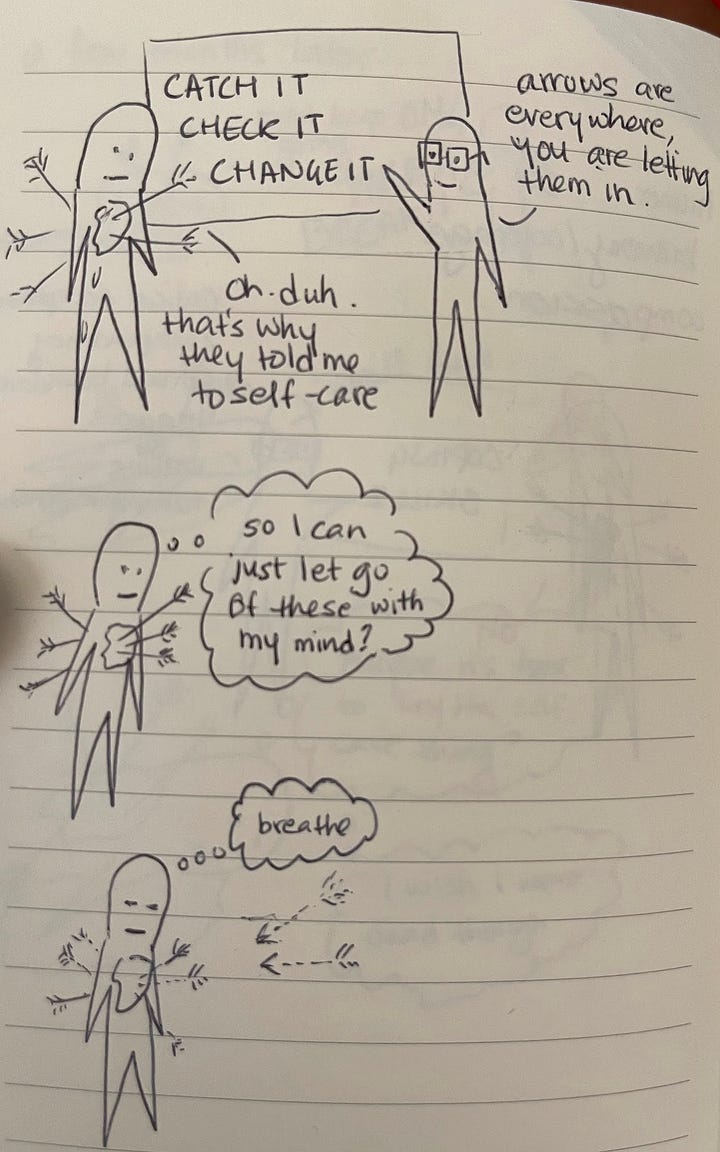 CATCH IT
CHECK IT
CHANGE IT
arrows are
everywhere,
you are letting
them in.
Oh. duh.
that's why
they told me
to self-care
so I can
just let go
Of these with
my mind?
breathe